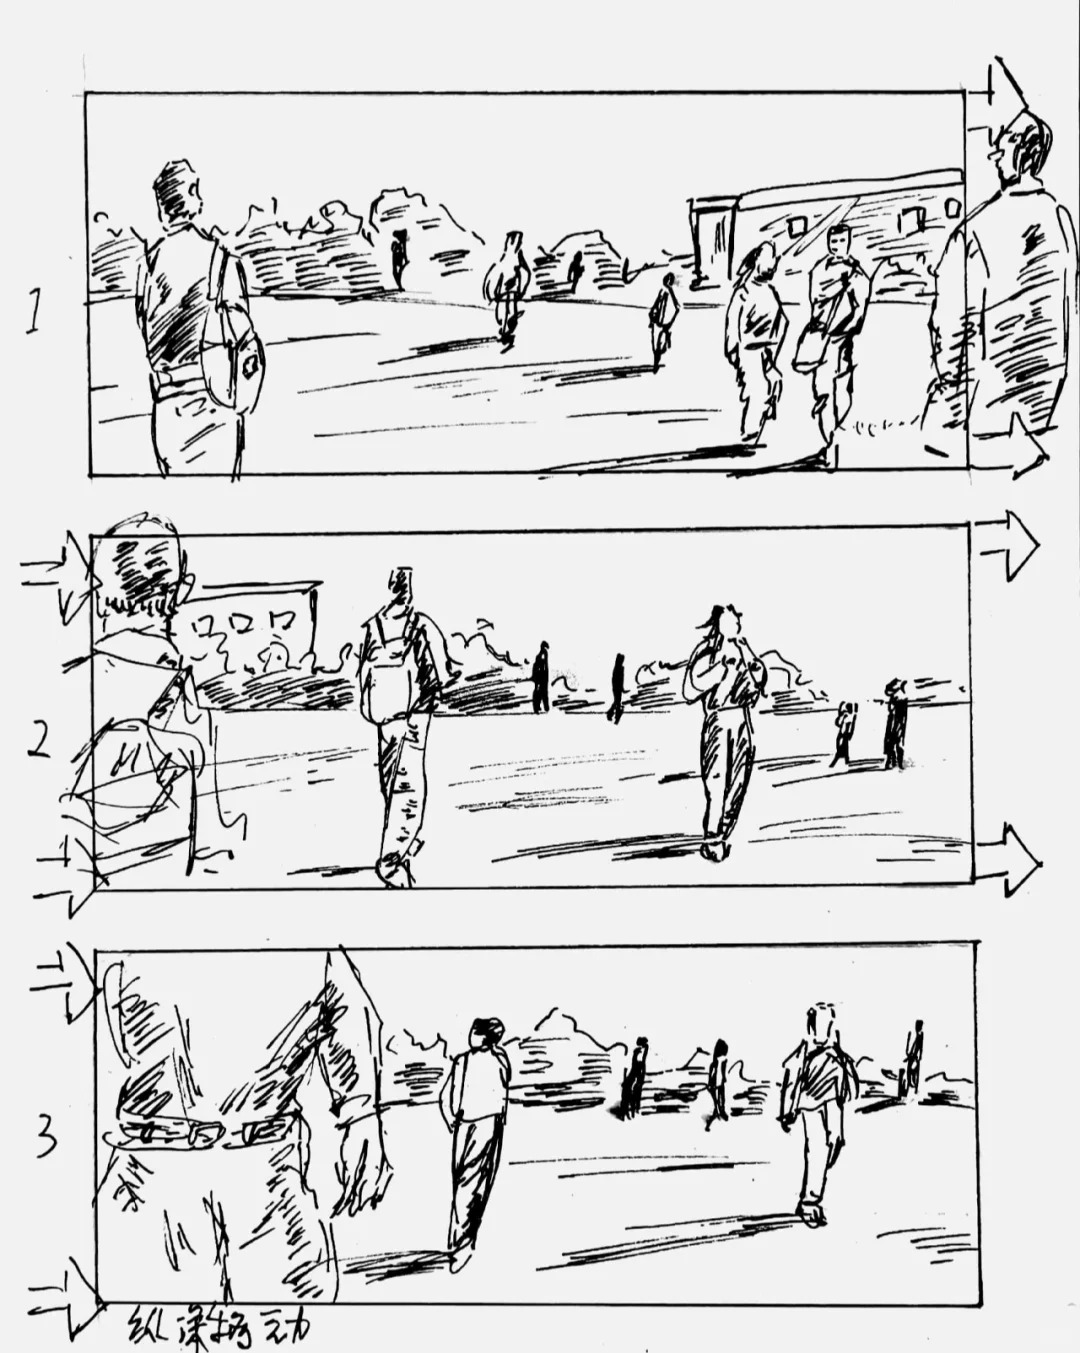 1
2
3
纵深移动